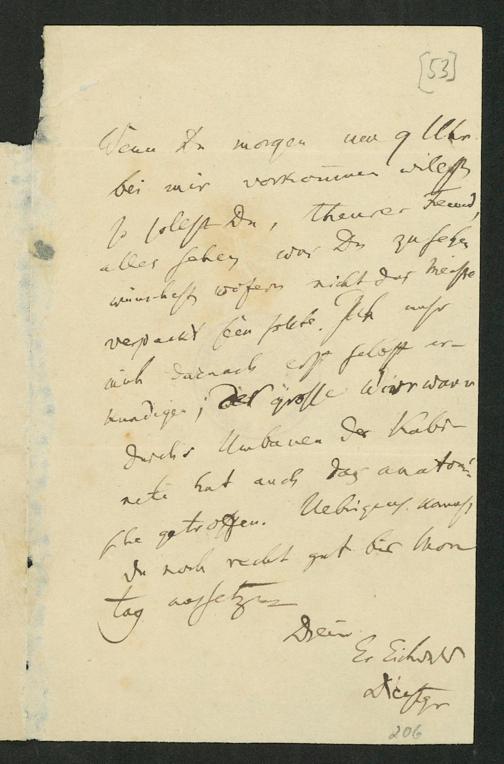 [53]
Wenn Du morgen um 9 Uhr
bei mir vorkommen willst
so sollst Du, theurer Freund,
alles sehen was Du zu sehen
wünschest, wofern nicht das Meiste
verpackt sein sollte. Ich muss
mich darnach erst selbst er-
kundigen; der grosse Wirrwarr
durchs Umbauen der Kabi-
nete hat auch das anatomi-
sche getroffen. Uebrigens kannst
Du noch recht gut bis Mon
tag aussetzen
Dein
Er Eichwald
206